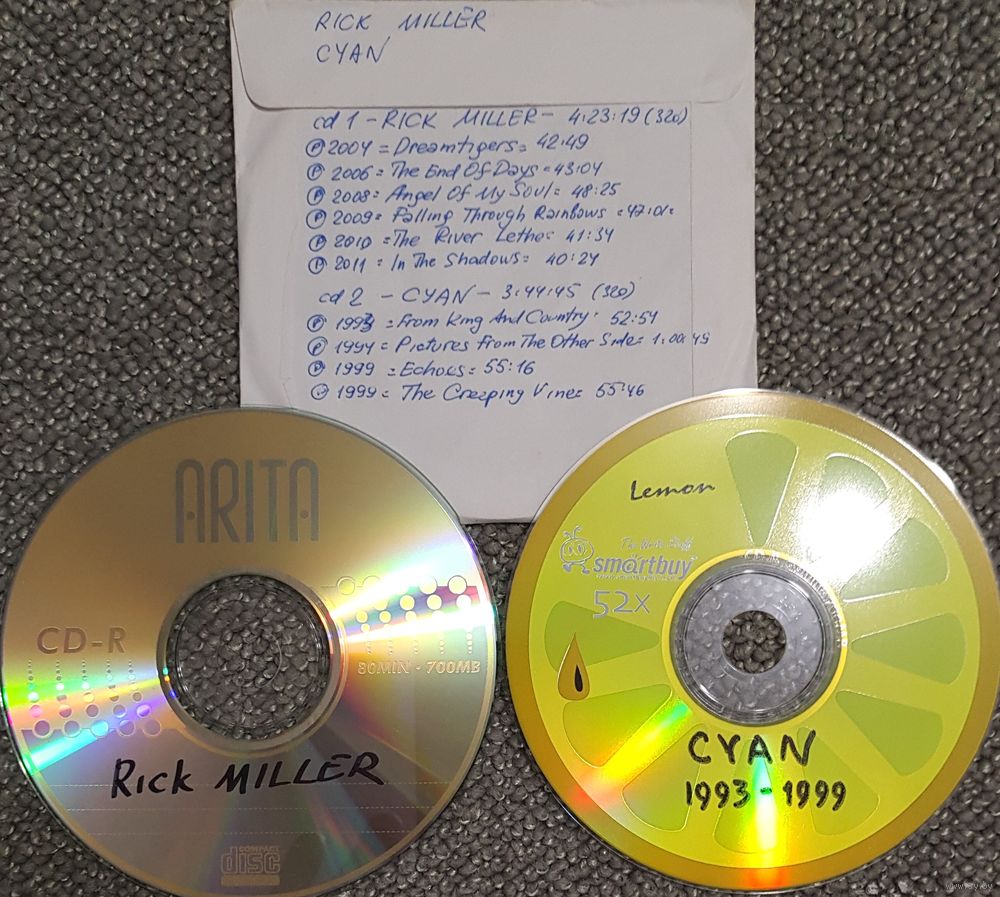 RICK MILLER
CYAN
cd 1 - RICK MILLER - 4:23:19 (320)
Ⓟ 2004 = Dreamtigers = 42:49
Ⓟ 2006 = The End Of Days = 43:04
Ⓟ 2008 = Angel Of My Soul = 48:25
Ⓟ 2009 = Falling Through Rainbows = 47:01
Ⓟ 2010 = The River Lethe = 41:34
Ⓟ 2011 = In The Shadows = 40:24
cd 2 - CYAN - 3:44:45 (320)
Ⓟ 1993 = From King And Country = 52:54
Ⓟ 1994 = Pictures from The Other Side = 1:00:49
Ⓟ 1999 = Echoes = 55:16
Ⓟ 1999 = The Creeping Vine = 55:46
ARITA
CD-R
80MIN · 700MB
Rick MILLER
COMPACT
disc
Lemon
smartbuy
52x
CYAN
1993 - 1999